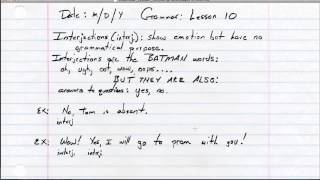 Date: M/D/Y Grammar: Lesson 10
Interjections (intrj): show emotion but have no
grammatical purpose.
Interjections are the BATMAN words:
oh, ugh, eek, wow, oops....
BUT THEY ARE ALSO:
answers to questions: yes, no.
EX: No, Tom is absent.
intrj
EX: Wow! Yes, I will go to prom with you!
intrj. intrj.